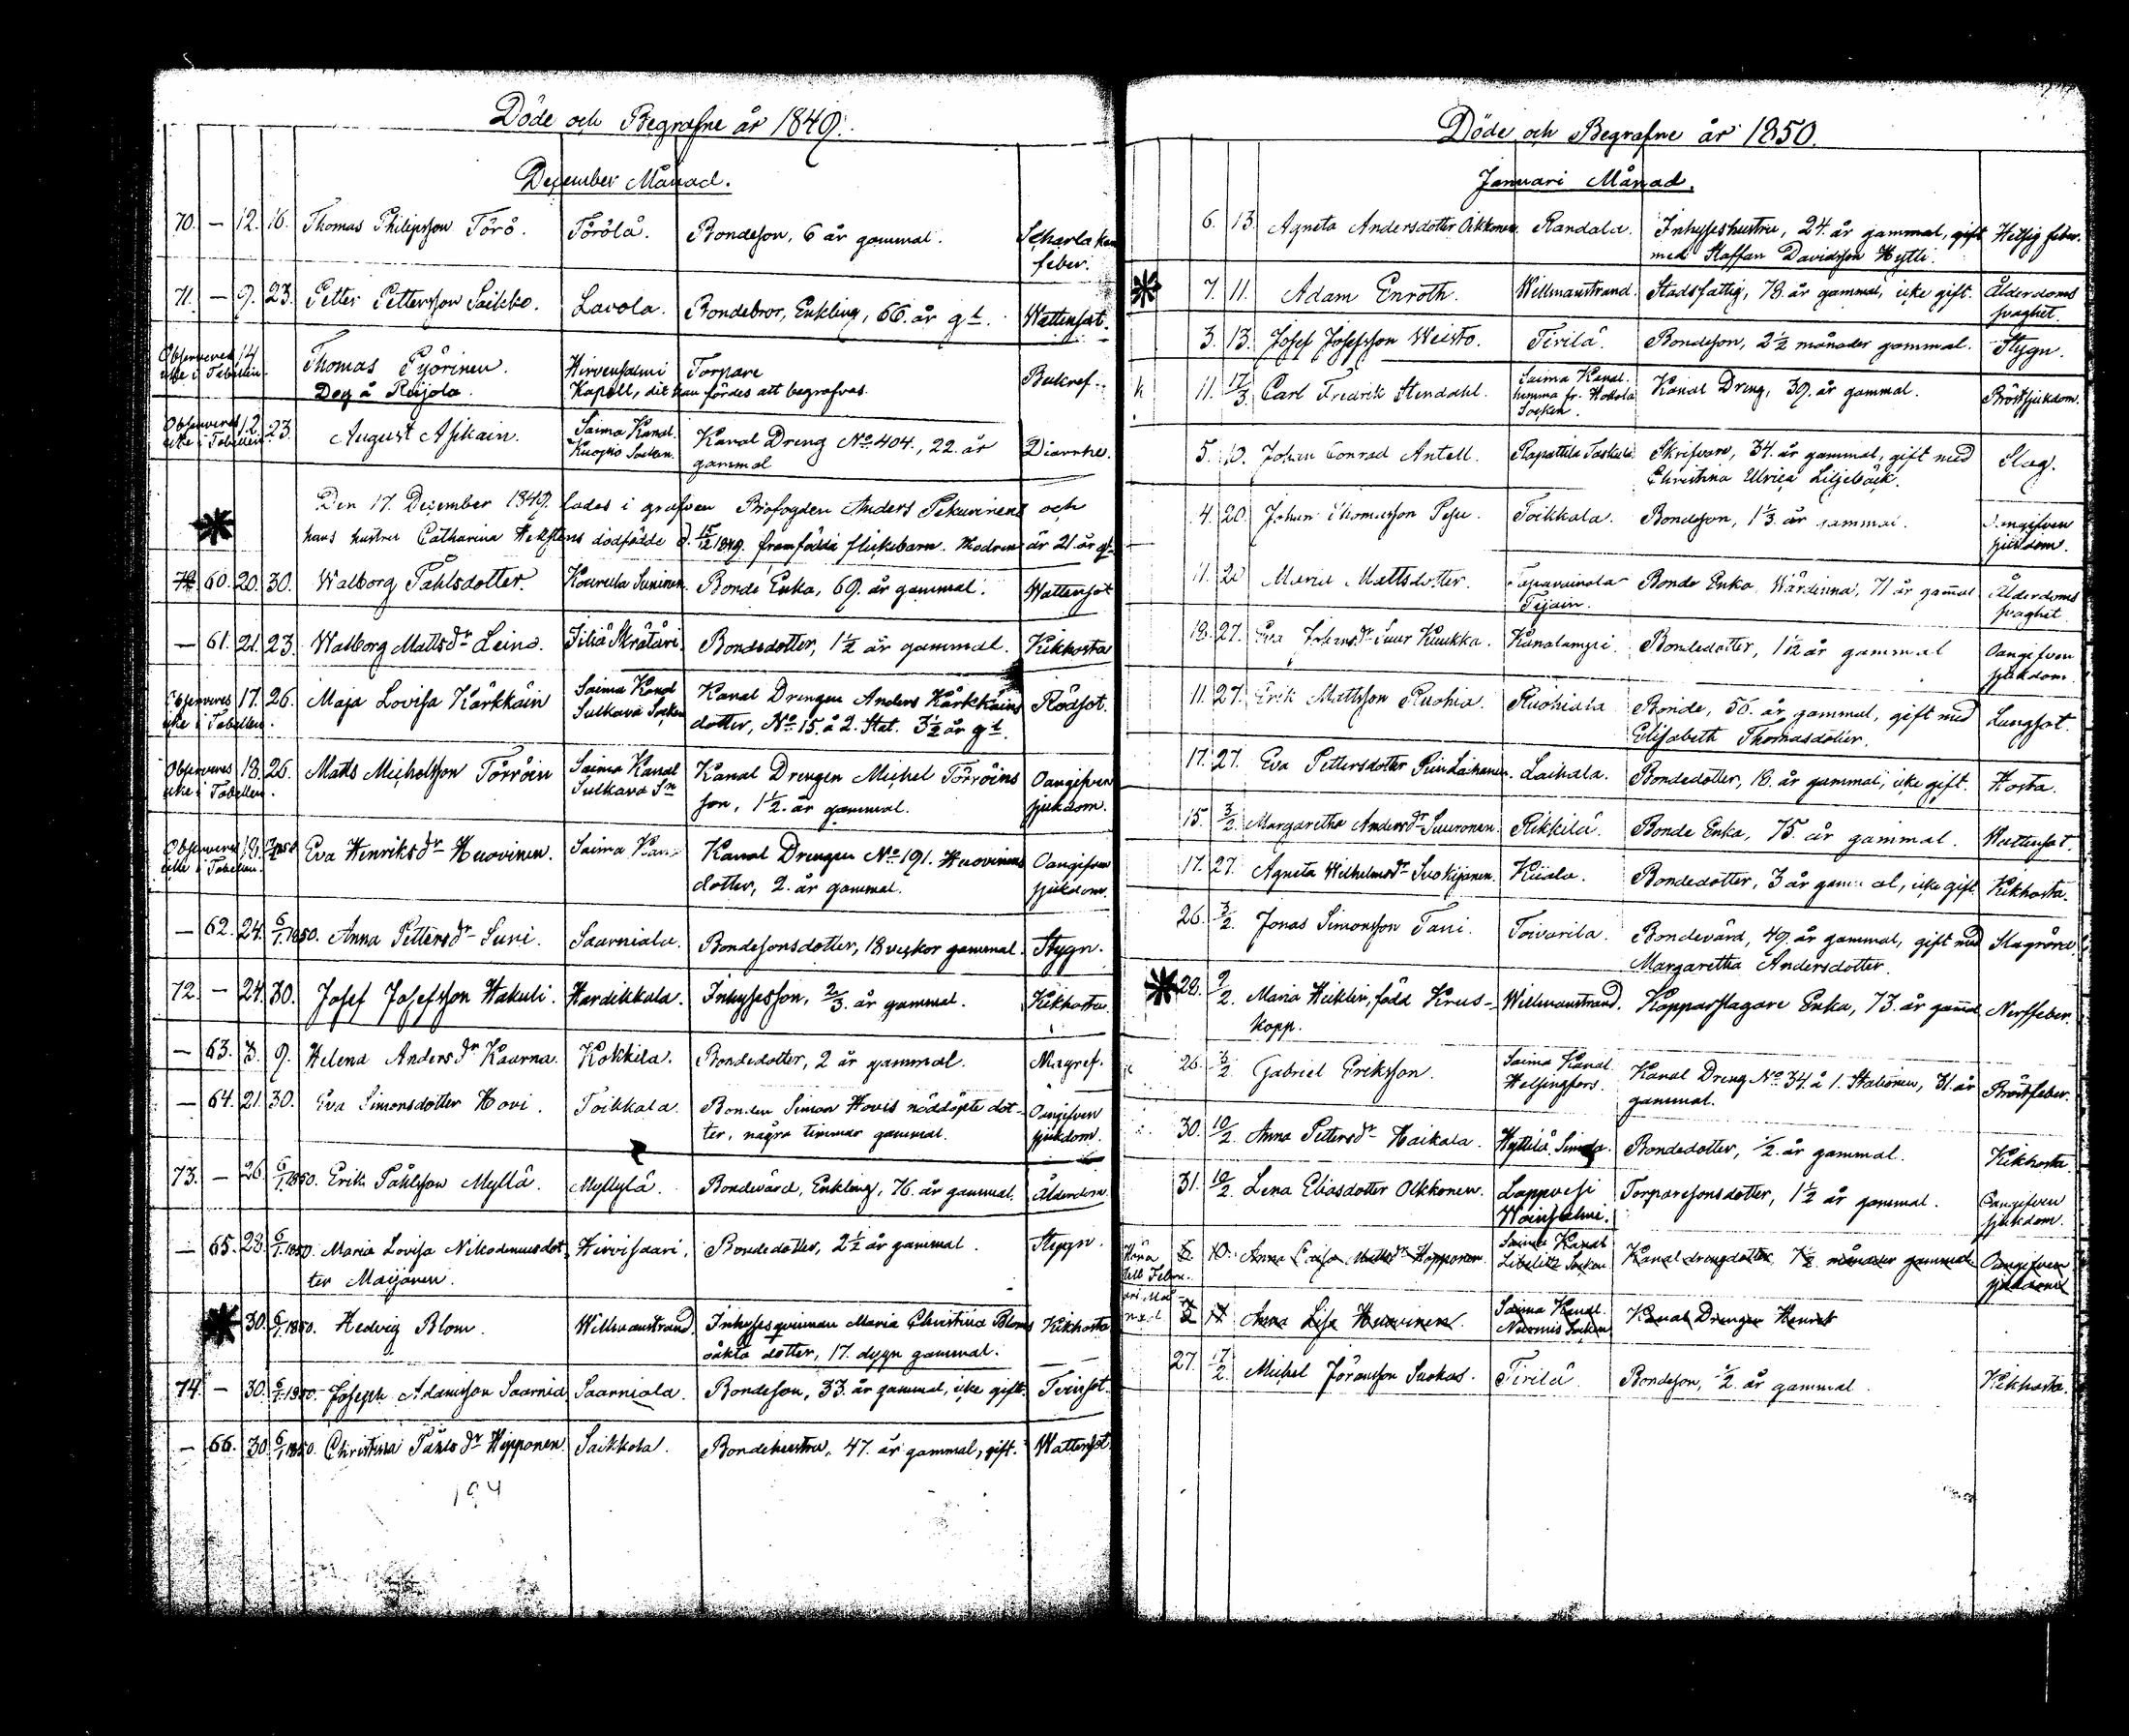 Döde och Begrafne år 1849.
December Månad.
70. – 12. 16. Thomas Philipsson Törö. Törölä. Bondeson, 6 år gammal. Scharlakans
feber.
71. – 9. 23. Petter Pettersson Saikko. Lavola. Bondebror, Enkling, 66. år gt. Wattensot.
Observeras 14 Thomas Pyörinen. Hirvensalmi Torpare Bukref.
icke i Tabellen. Dog å Reijola. Kapell, dit han fördes att begrafvas.
Observeras 12. 23. August Asikain. Saima Kanal. Kanal Dreng No 404., 22. år Diarrhe.
icke i Tabellen. Kuopio Socken. gammal
Den 17. December 1849. lades i grafven Brofogden Anders Pekurinens och
hans hustru Catharina Hekstens dödfödde d. 15/12 1849. framfödda flickebarn. Modren är 21. år gl.
72. 60. 20. 30. Walborg Påhlsdotter. Kourula Suninen. Bonde Enka, 69. år gammal. Wattensot
– 61. 21. 23. Walborg Mattsdr Leino. Filiä Skrätäri Bondedotter, 1½ år gammal. Kikhosta
Observeras 17. 26. Maja Lovisa Kärkkäin Saima Kanal Kanal Drengen Anders Kärkkäins Rödsot.
icke i Tabellen. Sulkava Socken dotter, No 15. å 2. Stat. 3½ år gl.
Observeras 18. 26. Matts Michelsson Törröin Saima Kanal Kanal Drengen Michel Törröins Oangifven
icke i Tabellen. Sulkava Sn son, 1½. år gammal. sjukdom.
Observeras 19. Eva Henriksdr Huovinen. Saima Kanal Kanal Drengen No 191. Huovinens Oangifven
icke i Tabellen. dotter, 2. år gammal. sjukdom.
– 62. 24. 6/1.1850. Anna Pettersdr Suni. Saarniala. Bondesonsdotter, 18 veckor gammal. Stygn.
72. – 24. 30. Josef Josefsson Hakuli. Hardikkala. Inhysesson, 2/3. år gammal. Kikhosta.
– 63. 3. 9. Helena Andersdr Kaarna. Kokkila. Bondedotter, 2 år gammal. Magref.
– 64. 21. 30. Eva Simonsdotter Hovi. Toikkala. Bonden Simon Hovis nöddöpte dot- Oangifven
ter, några timmar gammal. sjukdom.
73. – 26. 6/1.1850. Erik Påhlsson Myllä. Myllylä. Bondevärd, Enkling, 76. år gammal. Ålderdom.
– 65. 28. 6/1.1850. Maria Lovisa Nikodemusdot- Hirvisaari. Bondedotter, 2½ år gammal. Stygn.
ter Maijanen.
30. 6/1.1850. Hedvig Blom. Willmanstrand. Inhysesqvinnan Maria Christina Bloms Kikhosta
oäkta dotter, 17. dygn gammal.
74. – 30. 6/1.1850. Joseph Adamsson Saarnia Saarniala. Bondeson, 33. år gammal, icke gift. Tvinsot.
– 66. 30. 6/1.1850. Christina Påhlsdr Hipponen Saikkola. Bondehustru, 47. år gammal, gift. Wattensot.
194
Döde och Begrafne år 1850.
Januari Månad.
6. 13. Agneta Andersdotter Oikkonen. Randala. Inhyseshustru, 24. år gammal, gift Hetsig feber.
med Staffan Davidsson Hytti.
7. 11. Adam Enroth. Willmanstrand. Stadsfattig, 78. år gammal, icke gift. Ålderdoms
svaghet.
3. 13. Josef Josefsson Weisto. Tirilä. Bondeson, 2½ månader gammal. Stygn.
11. 17/3. Carl Fredrik Stendahl. Saima Kanal. Kanal Dreng, 39. år gammal. Bröstsjukdom.
hemma fr. Hollola
Socken.
5. 10. Johan Conrad Antell. Rapattila Skrifvare, 34. år gammal, gift med Slag.
Christina Ulrica Liljebäck.
4. 20. Johan Thomasson Pesu. Toikkala. Bondeson, 1⅓. år gammal. Oangifven
sjukdom.
11. 20 Maria Mattsdotter. Bonde Enka Wärdinna, 71 år gammal Ålderdoms
svaghet
18. 27. Eva Johansdr Suur Kuukka. Kanalampi. Bondedotter, 1 1/12 år gammal Oangifven
sjukdom.
11. 27. Erik Mattsson Ruohia. Ruohiala Bonde, 56. år gammal, gift med Lungsot.
Elisabeth Thomasdotter.
17. 27. Eva Pettersdotter Laihanen. Laihala. Bondedotter, 18. år gammal, icke gift. Hosta.
15. 3/2. Margaretha Andersdr Suuronen. Rikkilä. Bonde Enka, 75. år gammal. Wattensot.
17. 27. Agneta Wilhelmsdr Suokijonen. Kiiala. Bondedotter, 3 år gammal, icke gift Kikhosta.
26. 3/2. Jonas Simonsson Tani. Toivarila. Bondevärd, 49. år gammal, gift med Slagrörd
Margaretha Andersdotter.
28. 9/2. Maria Heiklin, född Krus- Willmanstrand. Kopparslagare Enka, 73. år gammal Nervfeber.
kopp.
26. 3/2. Gabriel Eriksson. Saima Kanal. Kanal Dreng No 34. å 1. Stationen, 31. år Bröstfeber.
Helsingfors. gammal.
30. 10/2. Anna Pettersdr Haikala. Hyttilä Simola. Bondedotter, ½. år gammal. Kikhosta.
31. 10/2. Lena Eliasdotter Olkkonen. Lappvesi Torparesonsdotter, 1½ år gammal. Oangifven
Wainikkala. sjukdom.
Höra 6. 10. Anna Caisa Mattsdr Hopponen. Saima Kanal Kanal drengdotter, 7½ månader gammal. Oangifven
till Febru- Libelitz Socken sjukdom
ari Må-
nad 17 Anna Lisa Huovinen. Saima Kanal. Kanal Drengen Henrik
Nurmis Socken
27. 17/2. Michel Jöransson Suokas. Tirilä. Bondeson, ½. år gammal. Kikhosta.